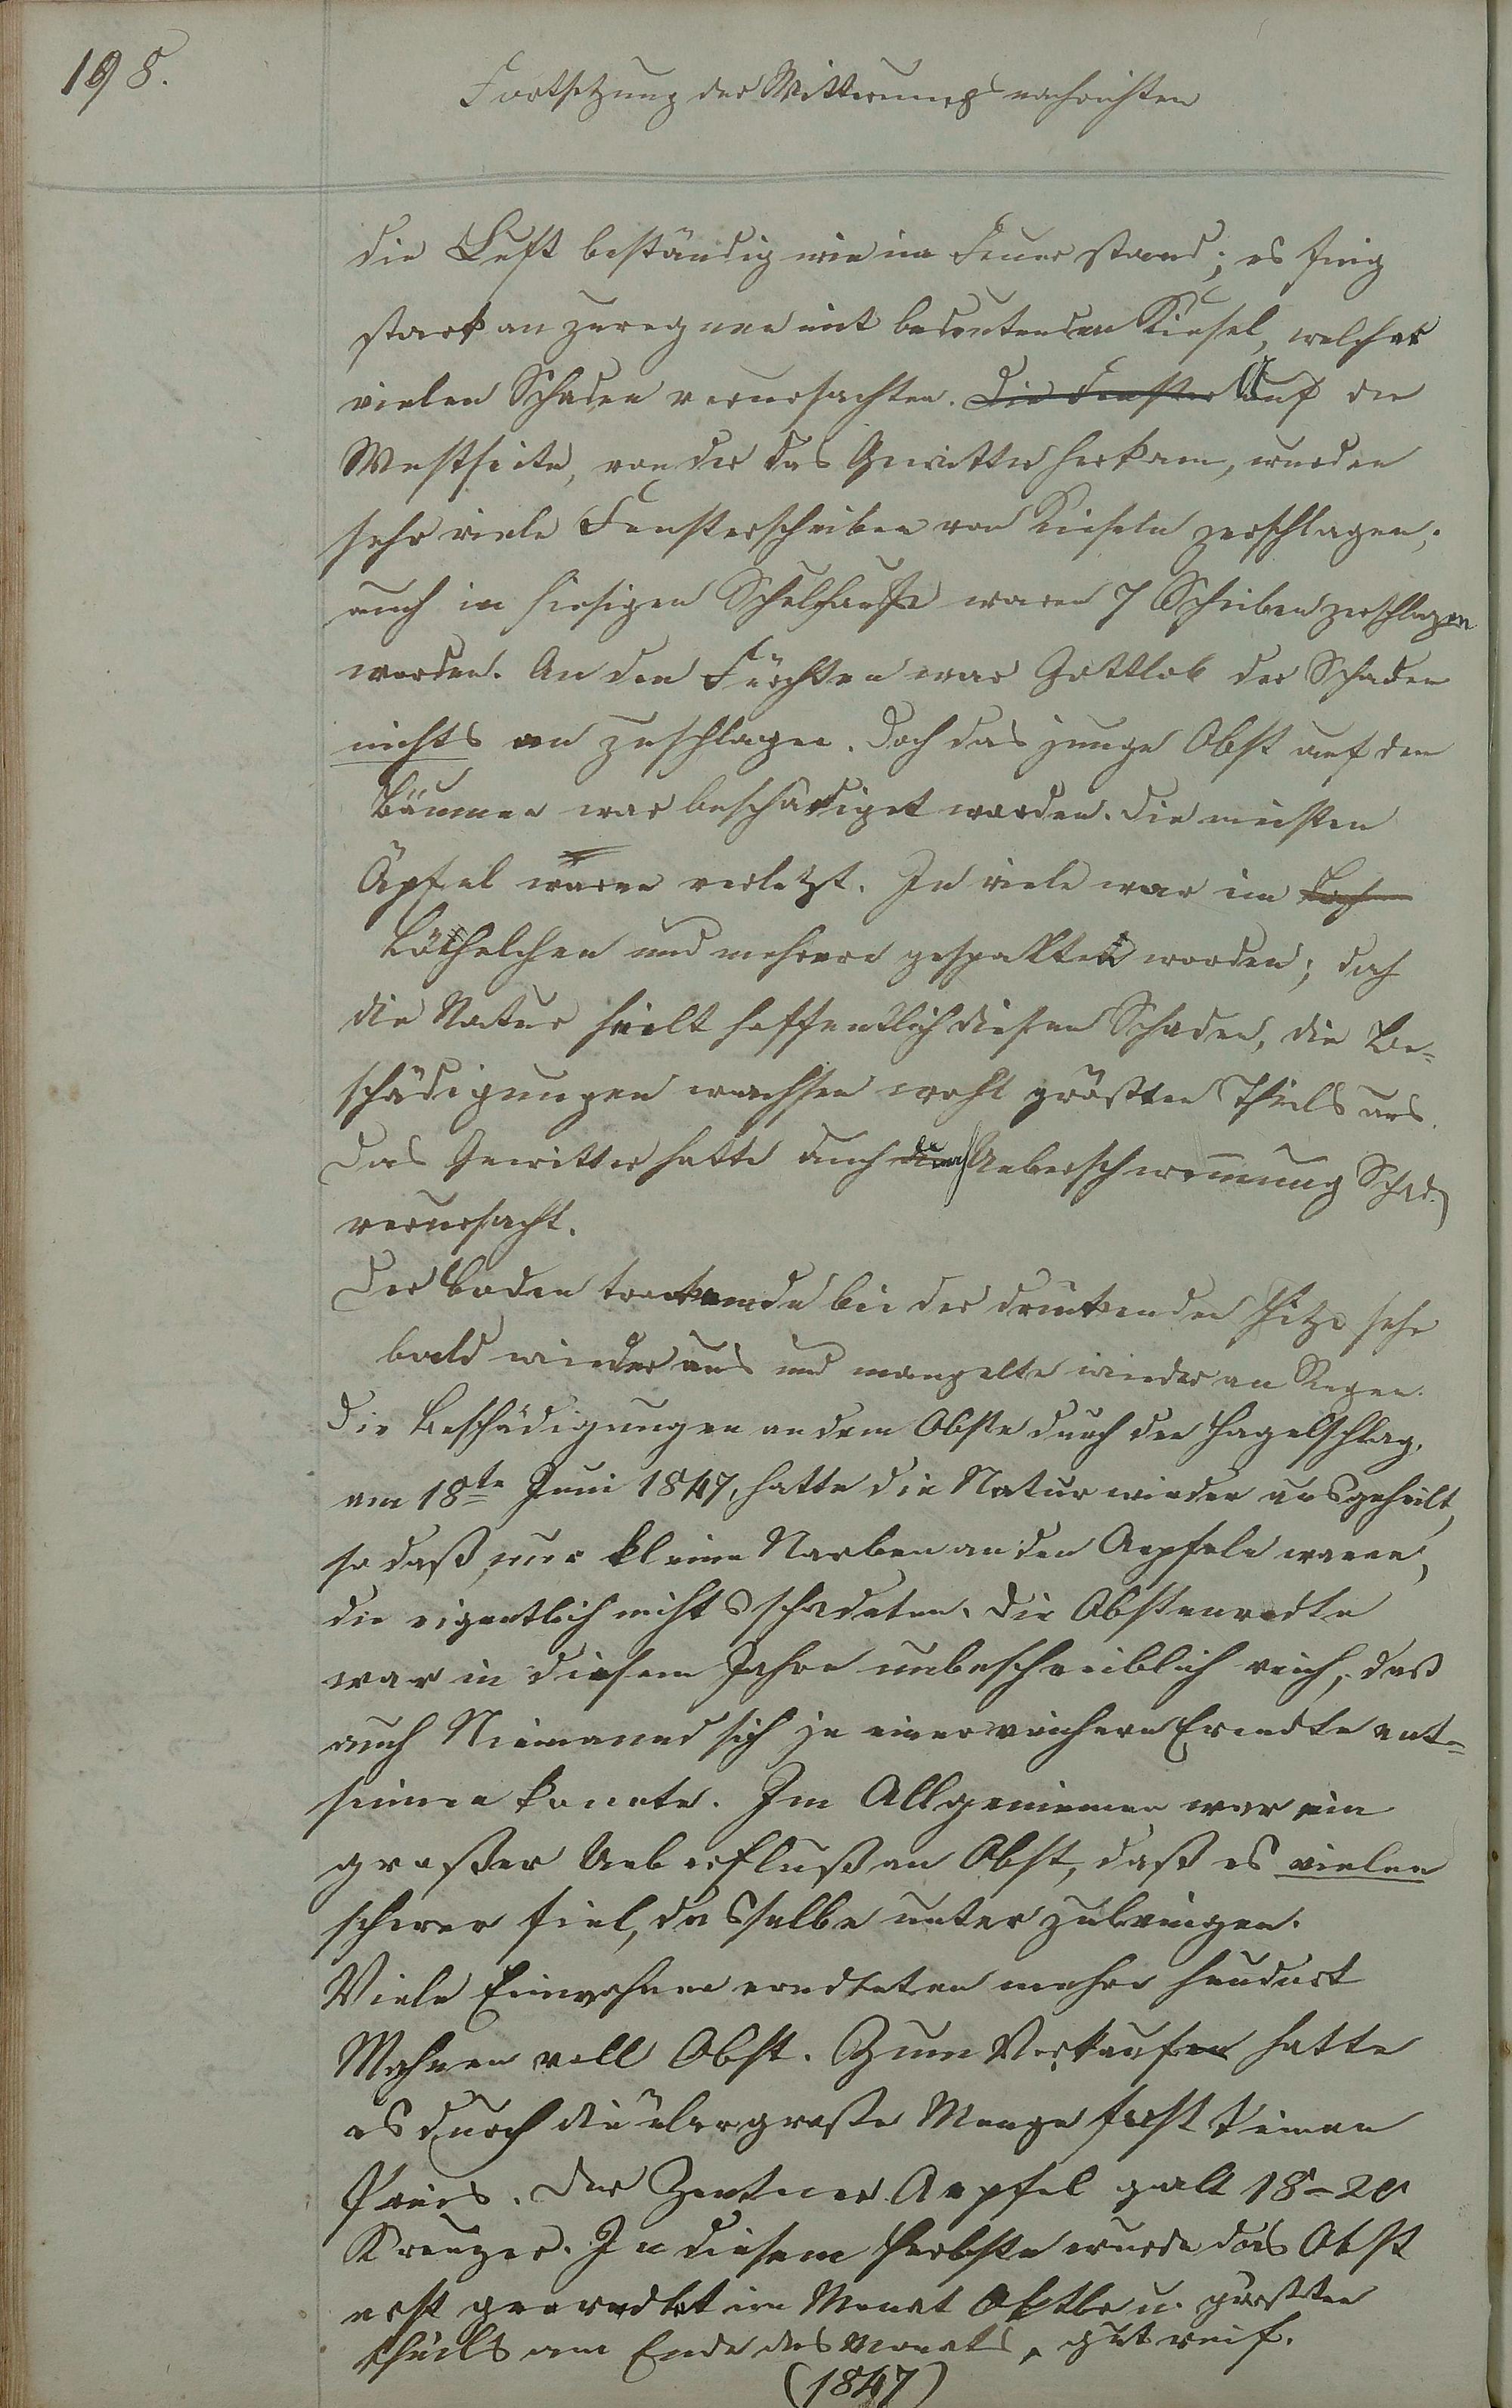 198.
Fortsetzung der Witterungsnachrichten
die Luft beständig wie im Feuer stand; es fing
stark an zu regnen mit bedeutenden Kiesel, welcher
vielen Schaden verursachten. Die Fenster Auf der
Westseite, von der das Gewitter herkam, wurden
sehr viele Fensterscheiben von Kieseln zerschlagen;
auch im hiesigen Schulhause waren 7 Scheiben zerschlagen
worden. An den Früchten war Gottlob der Schaden
nichts an zuschlagen. Doch das junge Obst auf den
Bäumen war beschädiget worden. Die meisten
Äpfel waren verletzt. In viele war ein Loch
Löchelchen und mehrere gespalten worden; doch
die Natur heilt hoffentlich diesen Schaden, die Be=
schädigungen wachsen wohl größten Theils aus.
Das Gewitter hatte auch durch Ueberschwemmung Schad.
verursacht.
Der Boden trocknende bei der drückenden Hitze sehr
bald wieder aus und mangelte wieder an Regen.
Die Beschädigungen an dem Obste durch den Hagelschlag,
am 18te Juni 1847, hatte die Natur wieder ausgeheilt,
so daß nur kleine Narben an den Aepfeln waren,
die eigentlich nichts schadeten. Die Obsterndte
war in diesem Jahre unbeschreiblich reich, daß
auch Niemand sich je einer reichern Erndte ent=
sinnen konnte. Im Allgemeinen war ein
großer Ueberfluß an Obst, daß es vielen
schwer fiel, dasselbe unter zubringen.
Viele Einwohner erndteten mehre hundert
Mahnen voll Obst. Zum Verkaufen hatte
es durch die übergroße Menge fast keinen
Preis. Der Zentner Aepfel galt 18-20
Kreuzer. In diesem Herbste wurde das Obst
erst geerndtet im Monat Oktbr u. größten
theils am Ende des Monats, gut reif.
(1847)